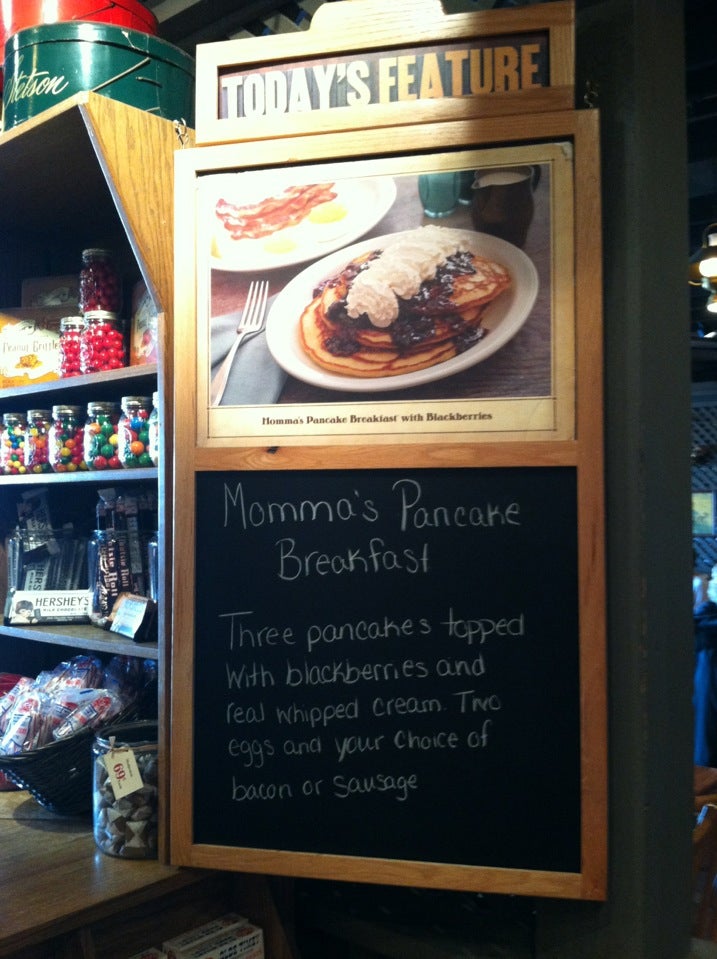 Stetson
TODAY'S FEATURE
Momma's Pancake Breakfast with Blackberries
Momma's Pancake
Breakfast
Three pancakes topped
with blackberries and
real whipped cream. Two
eggs and your choice of
bacon or sausage
Peanut Brittle
HERSHEY'S
MILK CHOCOLATE
69¢